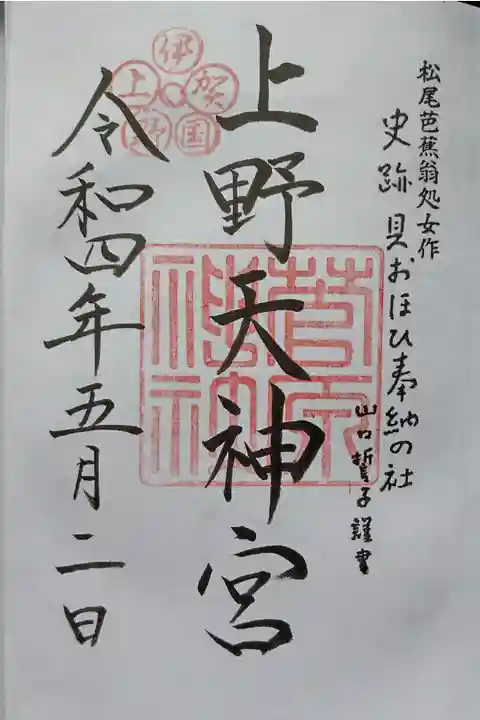 松尾芭蕉翁処女作
史跡貝おほひ奉納の社
山口誓子謹書
上野天神宮
伊賀国上野
菅原神社
令和四年五月二日